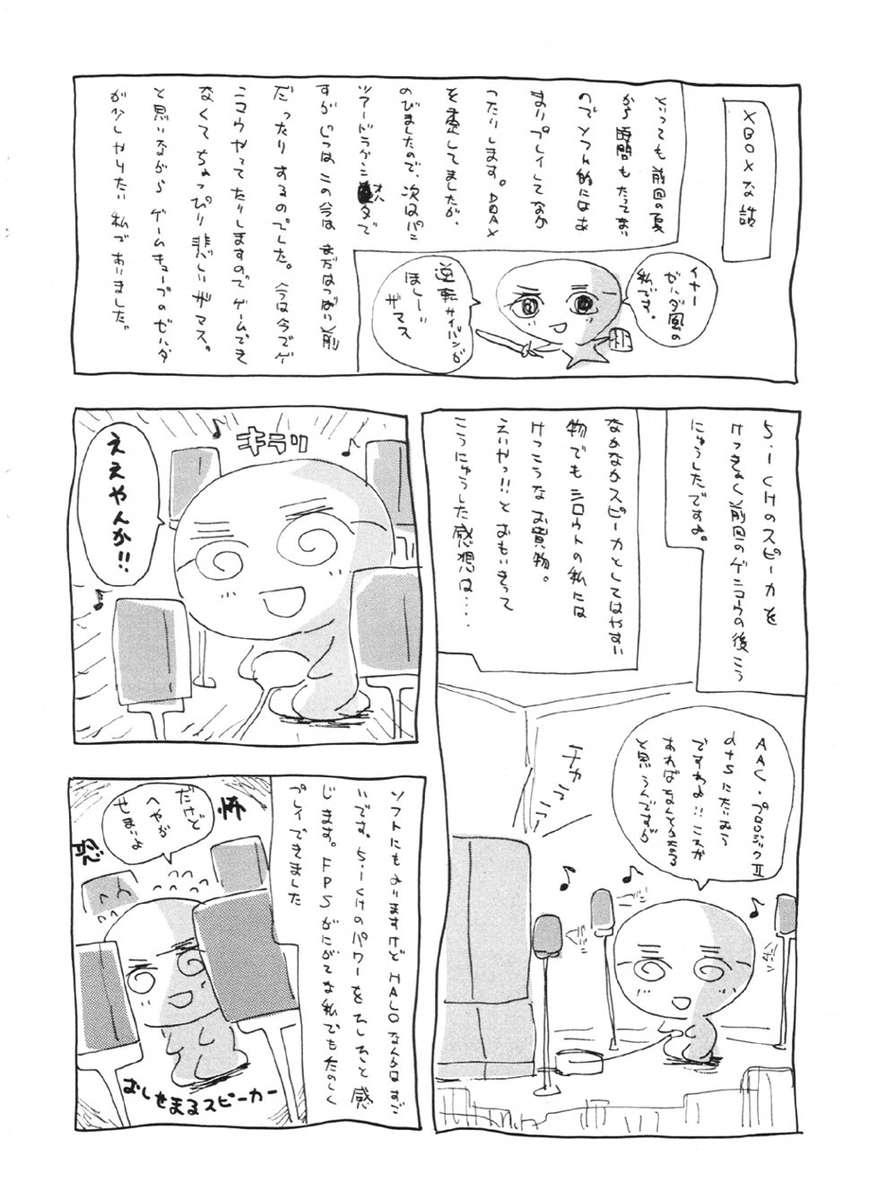 XBOXな話
とっても前回の夏
から時間もたってない
のでソフト的にはあ
まりプレイしてなか
ったりします。DOAX
を楽しみにしてましたが、
のびましたので、次はパン
ツアードラグーンオルタで
すが じつは この今は まだはつばい前
だったりするのでした。今は今でゲ
ンコウやってたりしますのでゲームできて
なくてちょっぴり悲しいザマス。
と思いながら ゲームキューブのゼルダ
が少しやりたい私でありました。
イナー
ゼルダ風の
私です。
逆転サイバンが
ほしー
ザマス
5.1CHのスピーカを
けっきょく前回のゲンコウの後こう
にゅうしたですよ。
なかなかスピーカとしてはやすい
物でもシロウトの私には
けっこうなお買物。
えいやっ!!とおもいきって
こうにゅうした感想は・・・・
キラリ
ええやんか!!
AAC・プロロジックⅡ
dtsにたいおう
ですわよ!!これが
あればなんとかなる
と思うんですが
チャララ
ソフトにもよりますけどHALOなんらはすご
いです。5.1CHのパワーをひしひしと感
じます。FPSがにがてな私でもたのしく
プレイできました
だけど
へやが
せまいよ
怖
おしせまるスピーカー